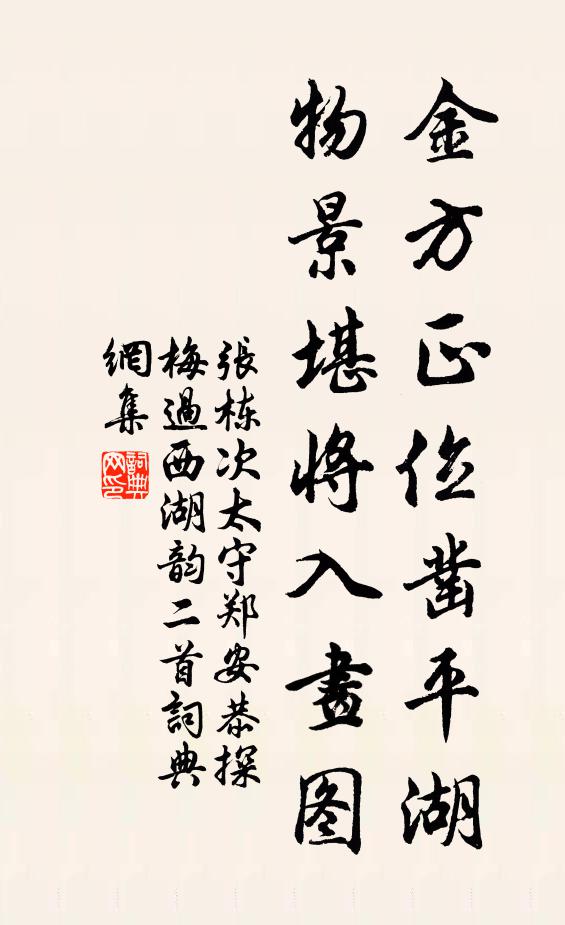 金方正位凿平湖
物景堪将入畫图
張栋次太守郑安恭探
梅過西湖韵二首詞典
網集
詞典
网印